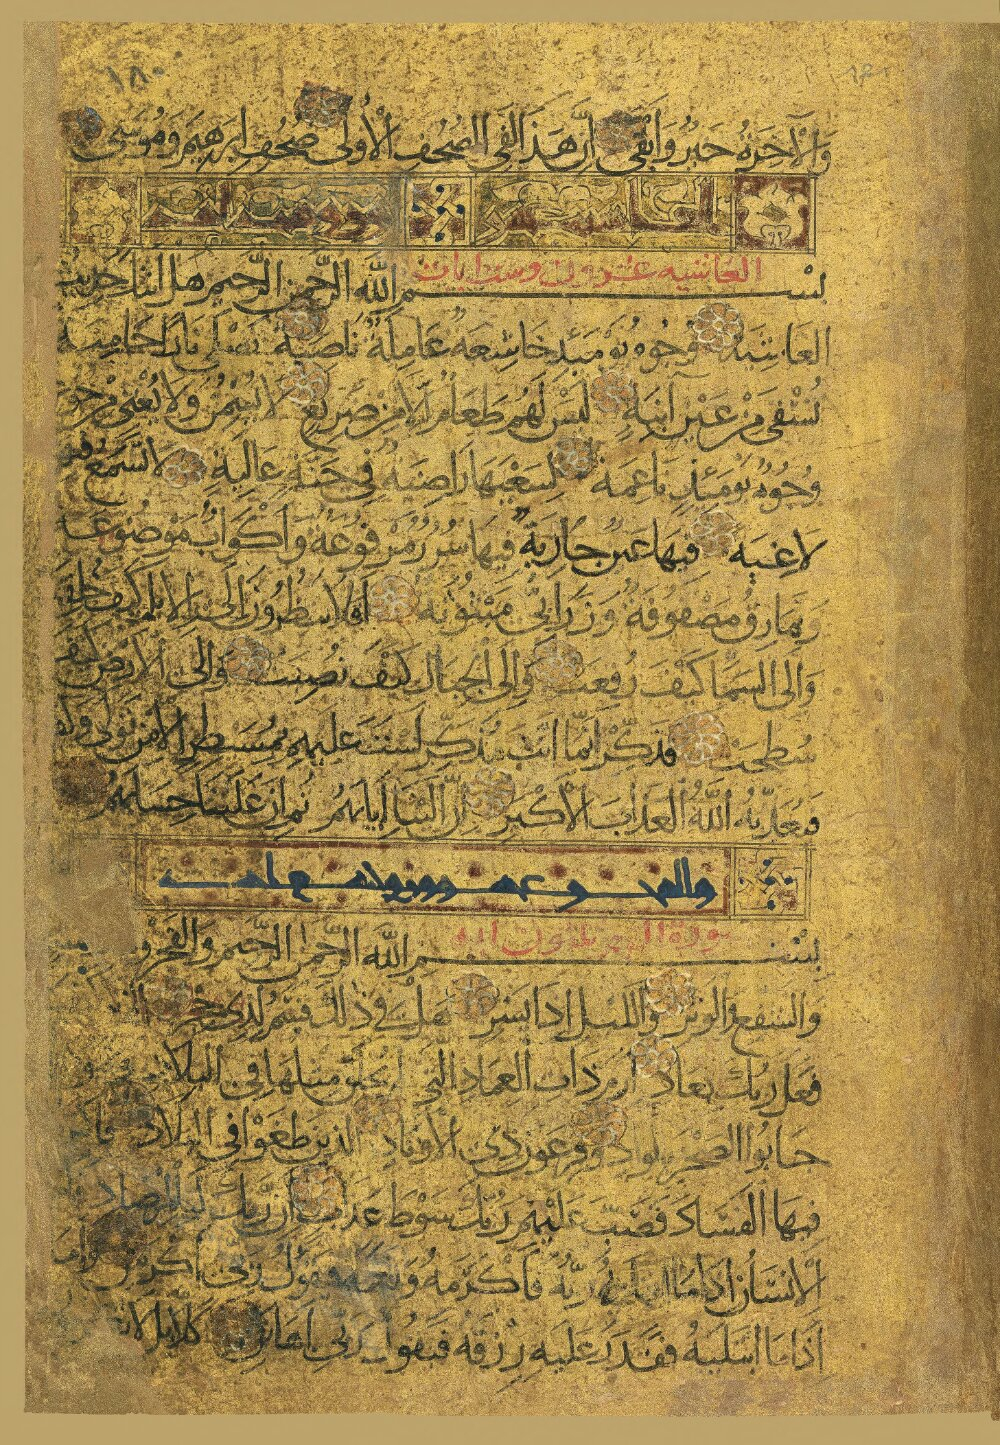 ١٨٠
وَالْآخِرَةُ خَيْرٌ وَأَبْقَى إِنَّ هَذَا لَفِي الصُّحُفِ الْأُولَى صُحُفِ إِبْرَهِيمَ وَمُوسَى
الغاشيه عشرون وست ايات
بِسْمِ اللَّهِ الرَّحْمَنِ الرَّحِيمِ هَلْ أَتَاكَ حَدِيثُ
الْغَاشِيَةِ وُجُوهٌ يَوْمَئِذٍ خَاشِعَةٌ عَامِلَةٌ نَاصِبَةٌ تَصْلَى نَارًا حَامِيَةً
تُسْقَى مِنْ عَيْنٍ آنِيَةٍ لَيْسَ لَهُمْ طَعَامٌ إِلَّا مِنْ ضَرِيعٍ لَا يُسْمِنُ وَلَا يُغْنِي مِنْ جُوعٍ
وُجُوهٌ يَوْمَئِذٍ نَاعِمَةٌ لِسَعْيِهَا رَاضِيَةٌ فِي جَنَّةٍ عَالِيَةٍ لَا تَسْمَعُ فِيهَا
لَاغِيَةً فِيهَا عَيْنٌ جَارِيَةٌ فِيهَا سُرُرٌ مَرْفُوعَةٌ وَأَكْوَابٌ مَوْضُوعَةٌ
وَنَمَارِقُ مَصْفُوفَةٌ وَزَرَابِيُّ مَبْثُوثَةٌ أَفَلَا يَنْظُرُونَ إِلَى الْإِبِلِ كَيْفَ خُلِقَتْ
وَإِلَى السَّمَاءِ كَيْفَ رُفِعَتْ وَإِلَى الْجِبَالِ كَيْفَ نُصِبَتْ وَإِلَى الْأَرْضِ كَيْفَ
سُطِحَتْ فَذَكِّرْ إِنَّمَا أَنْتَ مُذَكِّرٌ لَسْتَ عَلَيْهِمْ بِمُسَيْطِرٍ إِلَّا مَنْ تَوَلَّى وَكَفَرَ
فَيُعَذِّبُهُ اللَّهُ الْعَذَابَ الْأَكْبَرَ إِنَّ إِلَيْنَا إِيَابَهُمْ ثُمَّ إِنَّ عَلَيْنَا حِسَابَهُمْ
سورة الفجر ثلثون ايه
بِسْمِ اللَّهِ الرَّحْمَنِ الرَّحِيمِ وَالْفَجْرِ وَ
وَالشَّفْعِ وَالْوَتْرِ وَاللَّيْلِ إِذَا يَسْرِ هَلْ فِي ذَلِكَ قَسَمٌ لِذِي حِجْرٍ
فَعَلَ رَبُّكَ بِعَادٍ إِرَمَ ذَاتِ الْعِمَادِ الَّتِي لَمْ يُخْلَقْ مِثْلُهَا فِي الْبِلَادِ
جَابُوا الصَّخْرَ بِالْوَادِ وَفِرْعَوْنَ ذِي الْأَوْتَادِ الَّذِينَ طَغَوْا فِي الْبِلَادِ
فِيهَا الْفَسَادَ فَصَبَّ عَلَيْهِمْ رَبُّكَ سَوْطَ عَذَابٍ إِنَّ رَبَّكَ لَبِالْمِرْصَادِ
الْإِنْسَانُ إِذَا مَا ابْتَلَاهُ رَبُّهُ فَأَكْرَمَهُ وَنَعَّمَهُ فَيَقُولُ رَبِّي أَكْرَمَنِ وَأَمَّا
إِذَا مَا ابْتَلَيهُ فَقَدَرَ عَلَيْهِ رِزْقَهُ فَيَقُولُ رَبِّي أَهَانَنِ كَلَّا بَلْ لَا